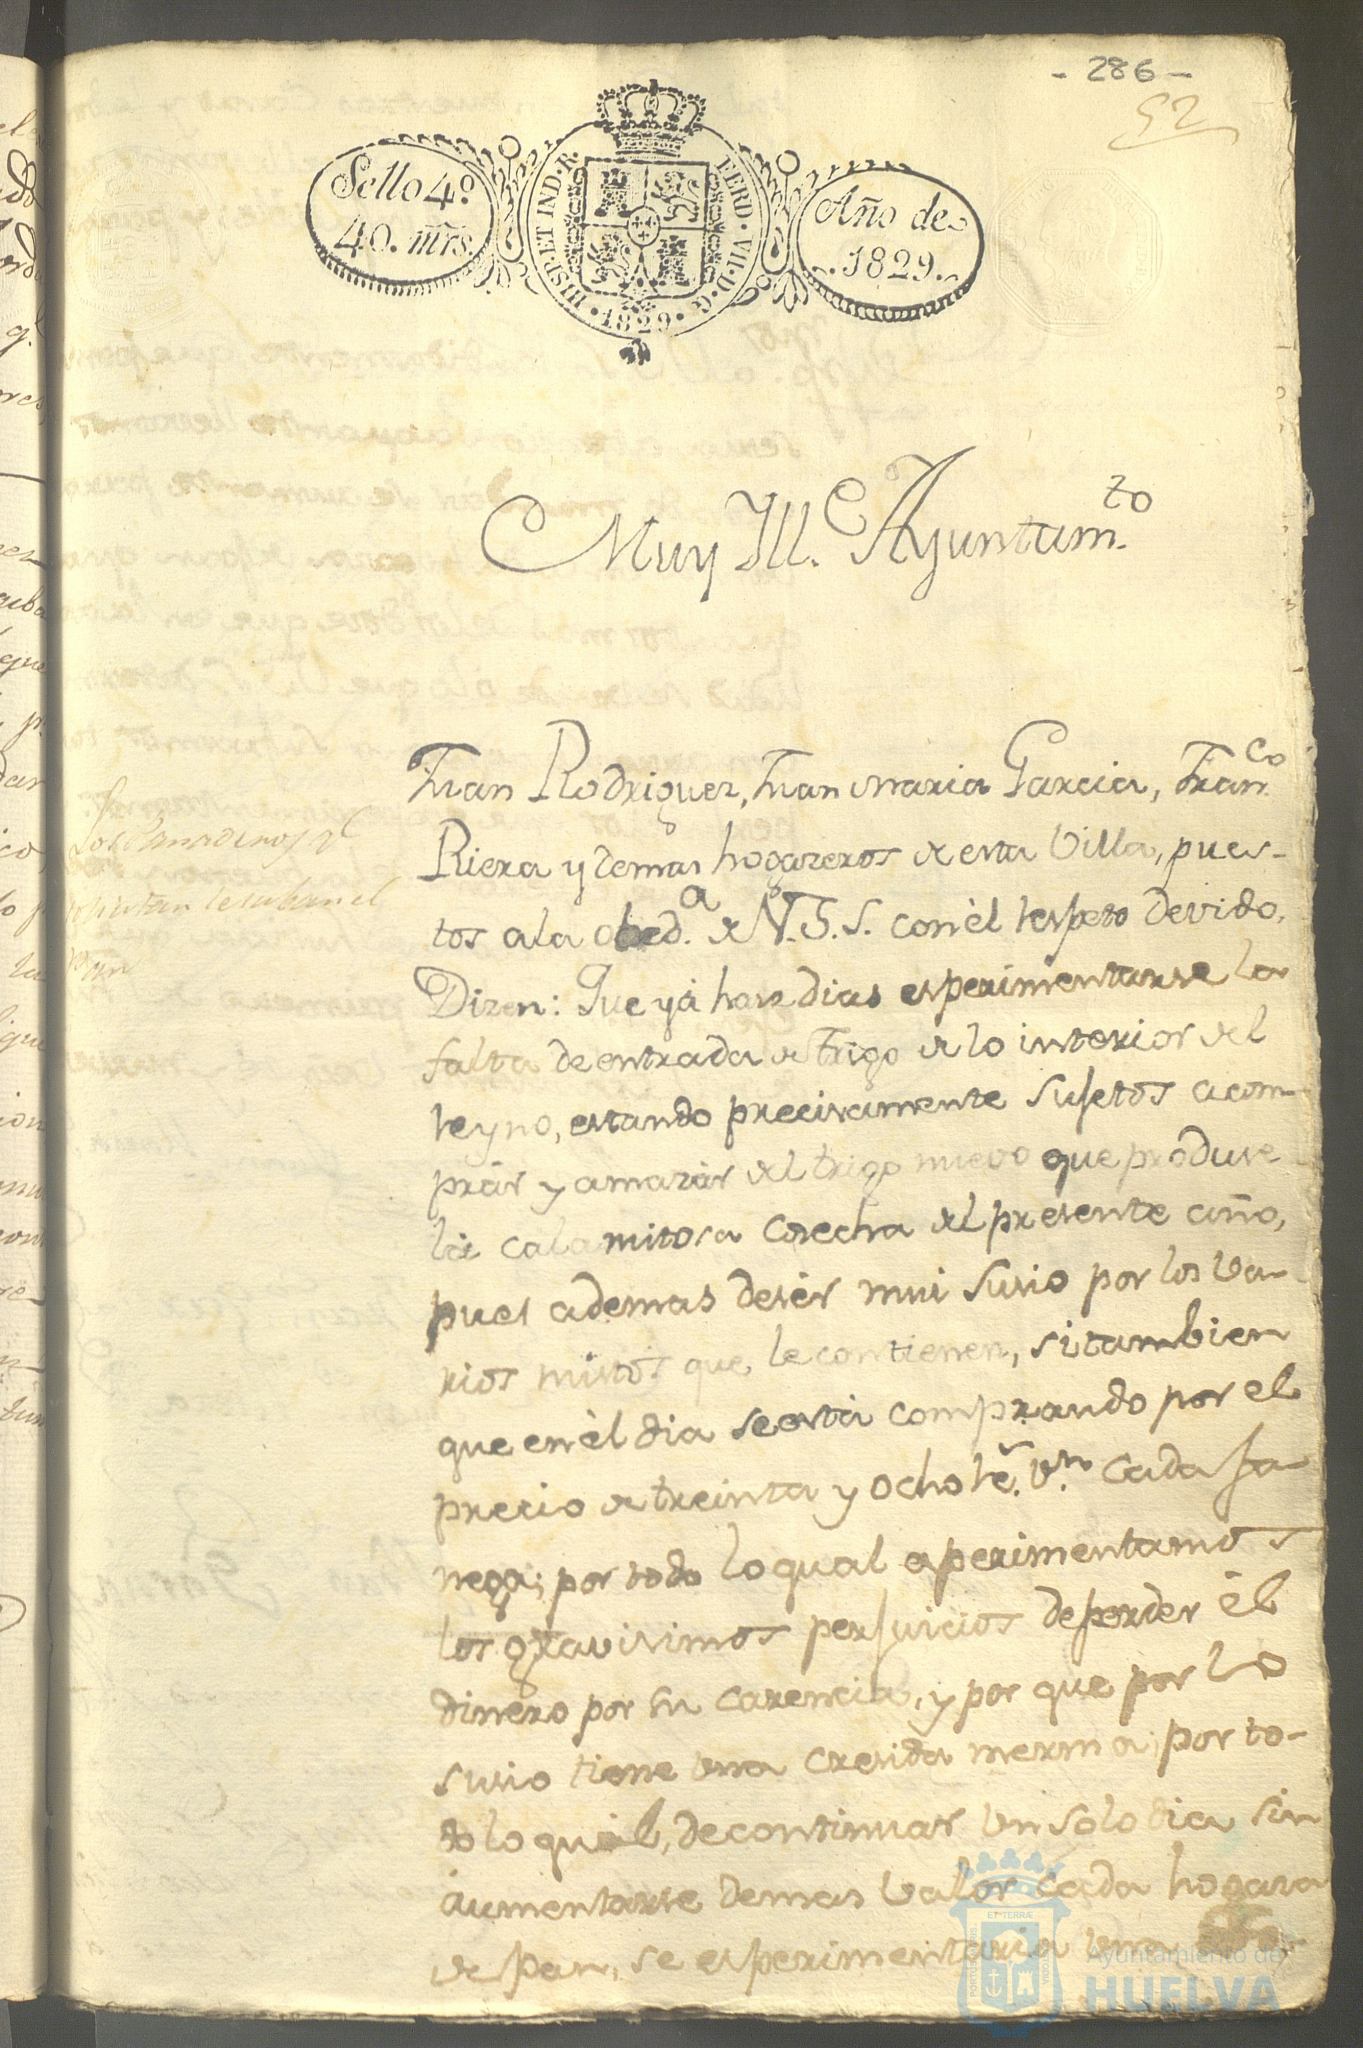 - 286 -
52
Sello 4º.
40. mrs.
HISP. ET IND. R.
FERD. VII. D. G.
· 1829 ·
Año de
.1829.
Muy Ill.e Ayuntam.to
Juan Rodriguez, Juan maria Garcia, Fran.co
Riera y demas hogazeros de esta Villa, pues-
tos a la obed.a de V. S. S. con èl respeto devido,
Dizen: Que yá haze dias esperimentarse la
falta de entrada de Trigo de lo interior del
reyno, estando precisamente sujetos a com-
prár y amazár del trigo nuevo que produse
la calamitosa Cosecha del presente año,
pues ademas de sér mui susio por los va-
rios mistos que le contienen, si tambien
que en èl dia se está comprando por el
precio de treinta y ocho rs. vn. cada fa-
nega; por todo lo qual esperimentamos
los gravisimos perjuicios de perder èl
dinero por su carencia, y por que por lo
susio tiene una cresida merma; por to-
do lo qual, de continuar un solo dia sin
aumentarse de mas valor cada hogasa
de pan, se esperimentaria una
Los Panaderos
solicitan se suba el
pan
Ayuntamiento de
HUELVA